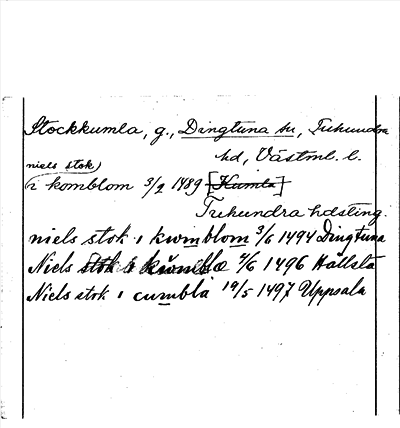 Stockkumla, g., Dingtuna sn, Tuhundra
hd, Västml. l.
niels stok)
i komblom 3/2 1489 [Kumla]
Tuhundra hdsting.
niels stok i kwmblom 3/6 1494 Dingtuna
Niels stok i kwmblæ 4/6 1496 Hällsta
Niels stok i cumbla 19/5 1497 Uppsala